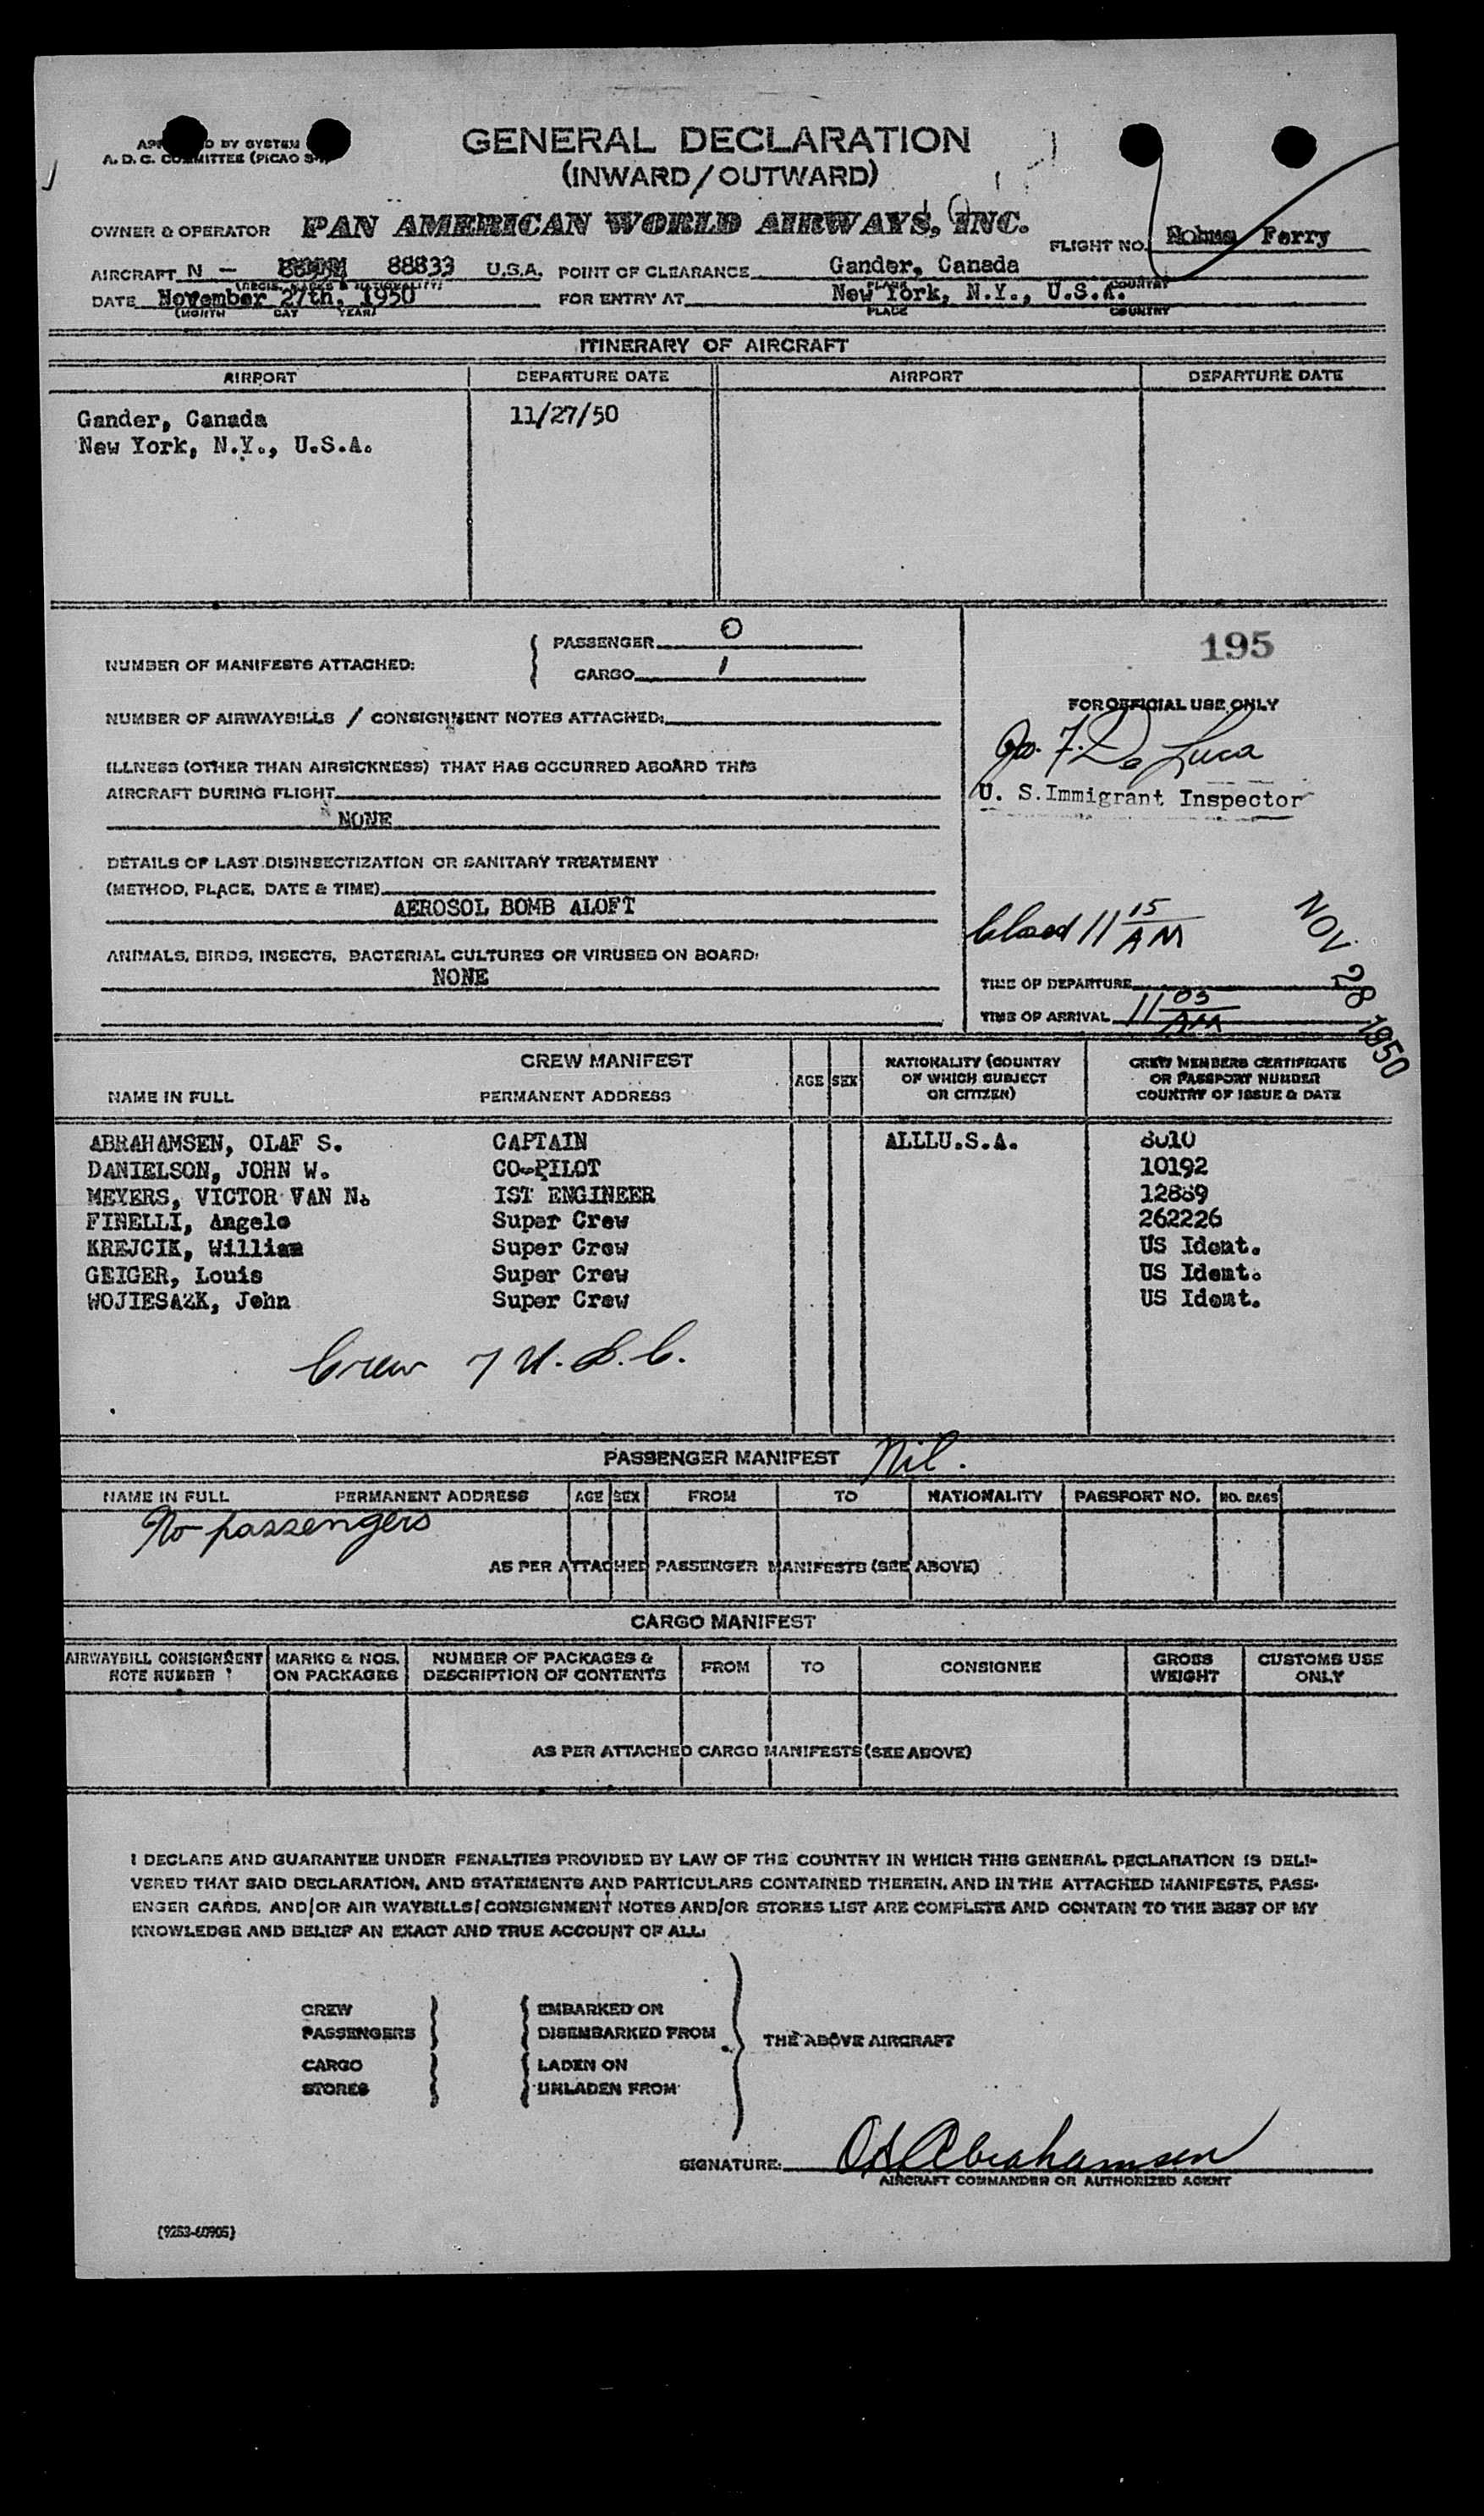 GENERAL DECLARATION
(INWARD/OUTWARD)
A. D. C. COMMITTEE (PICAO
OWNER & OPERATOR PAN AMERICAN WORLD AIRWAYS, INC.
FLIGHT NO. Ferry
AIRCRAFT N - 88833 U.S.A. POINT OF CLEARANCE Gander, Canada
(REGIS. MARKS & NATIONALITY) PLACE COUNTRY
DATE November 27th, 1950 FOR ENTRY AT New York, N.Y., U.S.A.
(MONTH DAY YEAR) PLACE COUNTRY
ITINERARY OF AIRCRAFT
AIRPORT DEPARTURE DATE AIRPORT DEPARTURE DATE
Gander, Canada 11/27/50
New York, N.Y., U.S.A.
NUMBER OF MANIFESTS ATTACHED:
PASSENGER 0
CARGO 1
195
NUMBER OF AIRWAYBILLS / CONSIGNMENT NOTES ATTACHED:
FOR OFFICIAL USE ONLY
De Luca
U. S. Immigrant Inspector
ILLNESS (OTHER THAN AIRSICKNESS) THAT HAS OCCURRED ABOARD THIS
AIRCRAFT DURING FLIGHT
NONE
DETAILS OF LAST DISINSECTIZATION OR SANITARY TREATMENT
(METHOD, PLACE, DATE & TIME)
AEROSOL BOMB ALOFT
11 15 AM
NOV 28 1950
ANIMALS, BIRDS, INSECTS, BACTERIAL CULTURES OR VIRUSES ON BOARD:
NONE
TIME OF DEPARTURE
TIME OF ARRIVAL 11 05 AM
CREW MANIFEST
NAME IN FULL PERMANENT ADDRESS AGE SEX NATIONALITY (COUNTRY OF WHICH SUBJECT OR CITIZEN) CREW MEMBERS CERTIFICATE OR PASSPORT NUMBER COUNTRY OF ISSUE & DATE
ABRAHAMSEN, OLAF S. CAPTAIN ALLLU.S.A. 8010
DANIELSON, JOHN W. CO-PILOT 10192
MEYERS, VICTOR VAN N. IST ENGINEER 12889
FINELLI, Angelo Super Crew 262226
KREJCIK, William Super Crew US Ident.
GEIGER, Louis Super Crew US Ident.
WOJIESAZK, John Super Crew US Ident.
Crew 7 U.S.C.
PASSENGER MANIFEST Nil.
NAME IN FULL PERMANENT ADDRESS AGE SEX FROM TO NATIONALITY PASSPORT NO. NO. BAGS
No passengers
AS PER ATTACHED PASSENGER MANIFESTS (SEE ABOVE)
CARGO MANIFEST
AIRWAYBILL CONSIGNMENT NOTE NUMBER MARKS & NOS. ON PACKAGES NUMBER OF PACKAGES & DESCRIPTION OF CONTENTS FROM TO CONSIGNEE GROSS WEIGHT CUSTOMS USE ONLY
AS PER ATTACHED CARGO MANIFESTS (SEE ABOVE)
I DECLARE AND GUARANTEE UNDER PENALTIES PROVIDED BY LAW OF THE COUNTRY IN WHICH THIS GENERAL DECLARATION IS DELI-
VERED THAT SAID DECLARATION, AND STATEMENTS AND PARTICULARS CONTAINED THEREIN, AND IN THE ATTACHED MANIFESTS, PASS-
ENGER CARDS, AND/OR AIR WAYBILLS/CONSIGNMENT NOTES AND/OR STORES LIST ARE COMPLETE AND CONTAIN TO THE BEST OF MY
KNOWLEDGE AND BELIEF AN EXACT AND TRUE ACCOUNT OF ALL:
CREW EMBARKED ON
PASSENGERS DISEMBARKED FROM
THE ABOVE AIRCRAFT
CARGO LADEN ON
STORES UNLADEN FROM
SIGNATURE: OS Abrahamsen
AIRCRAFT COMMANDER OR AUTHORIZED AGENT
(9253-60905)